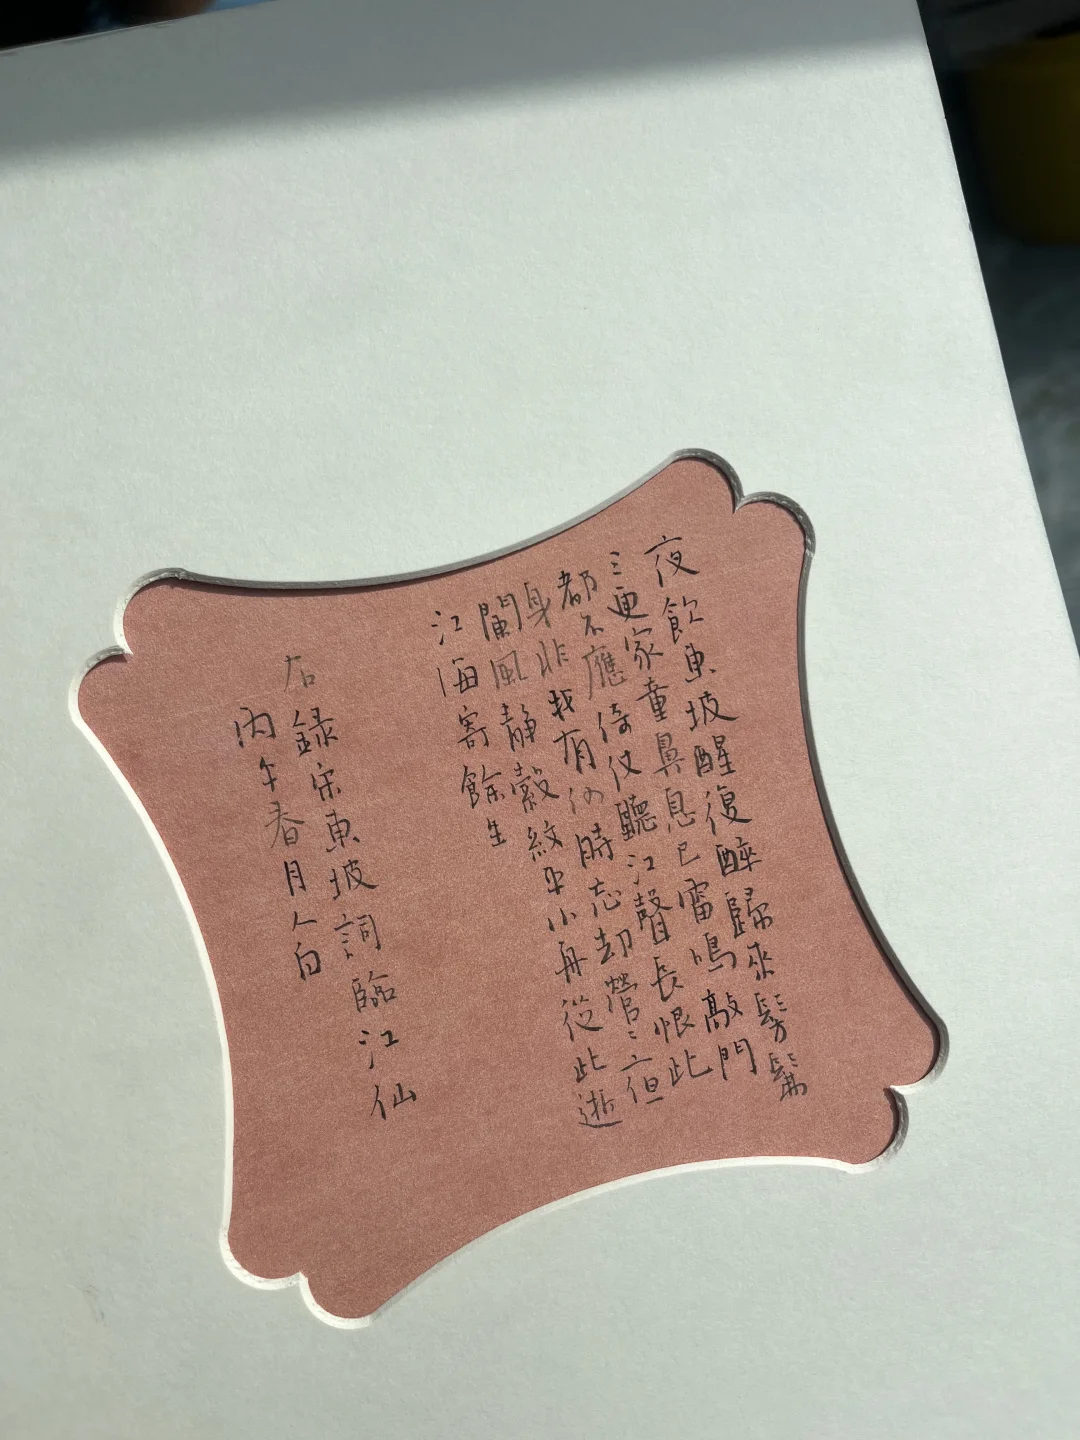 夜飲東坡醒復醉歸來髣髴
三更家童鼻息已雷鳴敲門
都不應倚仗聽江聲長恨此
身非我有何時忘却營〻亱
闌風静縠紋平小舟從此逝
江海寄餘生
右録宋東坡詞臨江仙
丙午春月人白